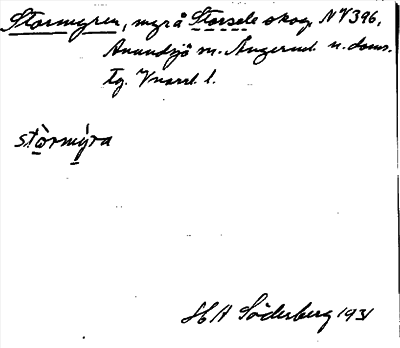 Stormyren, myrå Storsele skog NV396,
Anundsjö sn. Ångerml. n. doms.
tg. Vnorrl. l.
stòrmýra
HA Söderberg 1931